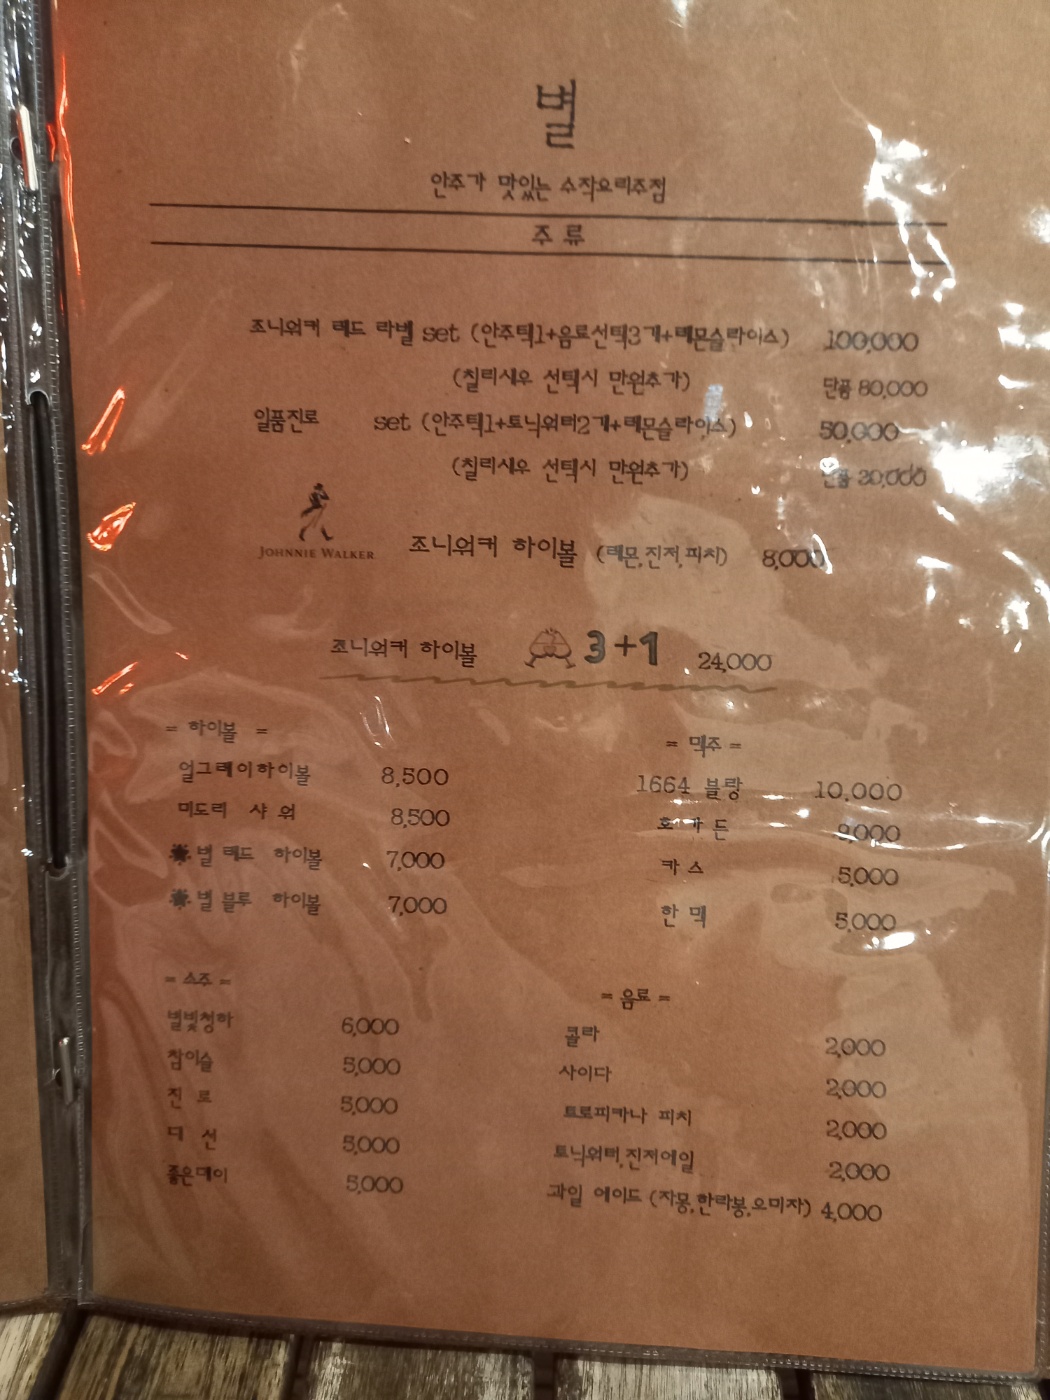 별
안주가 맛있는 수작요리주점
주류
조니워커 레드 라벨 set (안주택1+음료선택3개+레몬슬라이스) 100,000
(칠리새우 선택시 만원추가) 단품 80,000
일품진로 set (안주택1+토닉워터2개+레몬슬라이스) 50,000
(칠리새우 선택시 만원추가) 단품 30,000
JOHNNIE WALKER 조니워커 하이볼 (레몬,진저,피치) 8,000
조니워커 하이볼 3+1 24,000
= 하이볼 =
얼그레이하이볼 8,500
미도리 샤워 8,500
별 레드 하이볼 7,000
별 블루 하이볼 7,000
= 맥주 =
1664 블랑 10,000
호가든 9,000
카스 5,000
한맥 5,000
= 소주 =
별빛청하 6,000
참이슬 5,000
진로 5,000
대선 5,000
좋은데이 5,000
= 음료 =
콜라 2,000
사이다 2,000
트로피카나 피치 2,000
토닉워터,진저에일 2,000
과일 에이드 (자몽,한라봉,오미자) 4,000